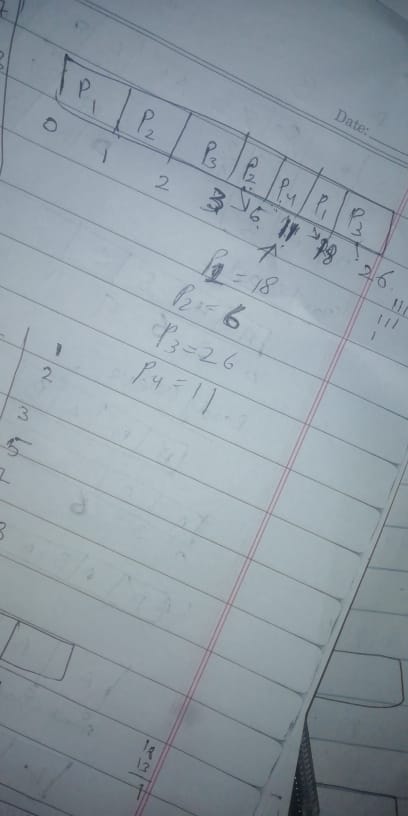 Date:
P1 P2 P3 P2 P4 P1 P3
0 1 2 3 6 11 18 26
P1 = 18
P2 = 6
P3 = 26
P4 = 11
1
2
3
5
18
13